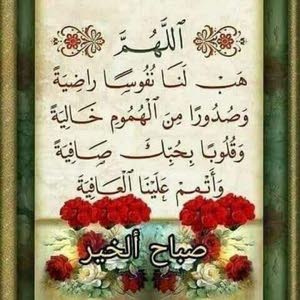 اَللّٰهُمَّ
هَبْ لَنَا نُفُوسًا رَاضِيَةً
وَصُدُورًا مِنَ الْهُمُومِ خَالِيَةً
وَقُلُوبًا بِحُبِّكَ صَافِيَةً
وَأَتْمِمْ عَلَيْنَا الْعَافِيَةَ
صباح ألخير